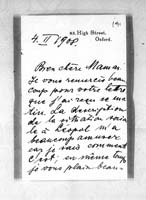 63, High Street,
Oxford.
4. II 1908.
Bien chère Maman.
Je vous remercie beau-
coup pour votre lettre
que j'ai reçu ce ma-
tin. La description
de la situation
à m'a
beaucoup amuser
car je sais comment
c'est, en même temps
je vous plains beau-